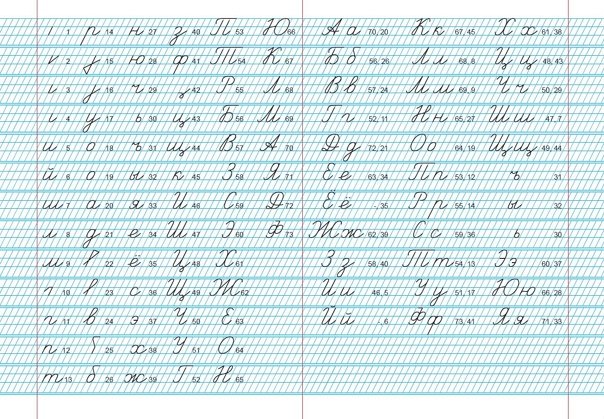 1 р 14 н 27 з 40 П 53 Ю 66 Аа 70, 20 Кк 67, 45 Хх 61, 38
2 15 ю 28 ф 41 Т 54 К 67 Бб 56, 26 Лл 68, 8 Цц 48, 43
3 16 ч 29 42 Р 55 Л 68 Вв 57, 24 Мм 69, 9 Чч 50, 29
4 у 17 ь 30 ц 43 Б 56 М 69 Гг 52, 11 Нн 65, 27 Шш 47, 7
и 5 о 18 ъ 31 щ 44 В 57 А 70 Дд 72, 21 Оо 64, 19 Щщ 49, 44
й 6 о 19 ы 32 к 45 З 58 Я 71 Ее 63, 34 Пп 53, 12 ъ 31
ш 7 а 20 я 33 И 46 С 59 Д 72 Ёё -, 35 Рр 55, 14 ы 32
л 8 д 21 е 34 Ш 47 Э 60 Ф 73 Жж 62, 39 Сс 59, 36 ь 30
м 9 22 ё 35 Ц 48 Х 61 Зз 58, 40 Тт 54, 13 Ээ 60, 37
10 23 с 36 Щ 49 Ж 62 Ии 46, 5 Уу 51, 17 Юю 66, 28
г 11 в 24 э 37 Ч 50 Е 63 Йй -, 6 Фф 73, 41 Яя 71, 33
п 12 25 х 38 У 51 О 64
т 13 б 26 ж 39 Г 52 Н 65